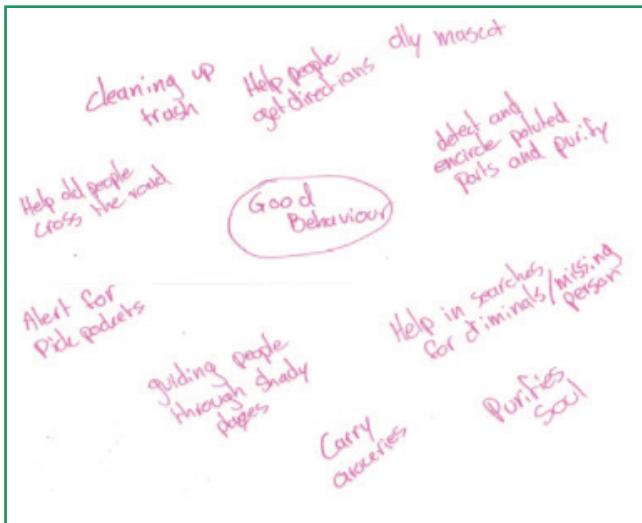 dlly mascot
cleaning up
trash
Help people
get directions
detect and
encircle poluted
parts and purify
Help old people
cross the road
Good
Behaviour
Alert for
Pick pockets
Help in searches
for criminals/missing
person
guiding people
through shady
places
Purifies
Soul
Carry
groceries